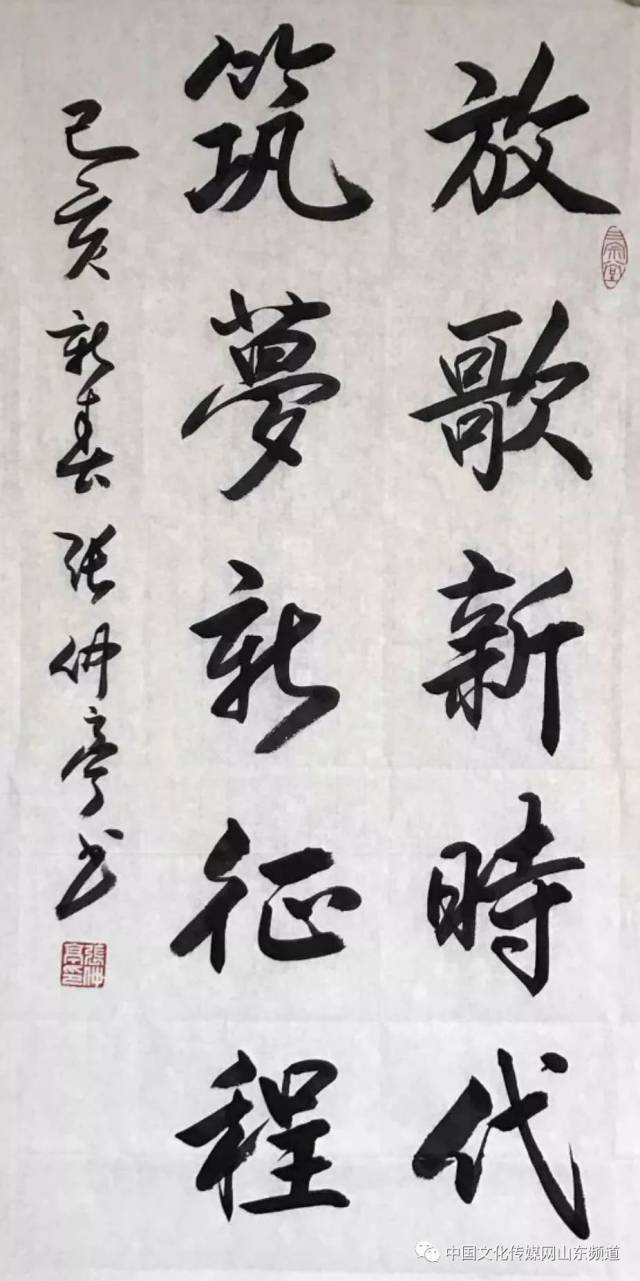 放歌新時代
筑夢新征程
己亥新春张仲亭书
張仲亭印
中国文化传媒网山东频道